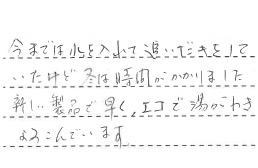 今までは水を入れて追いだきをして
いたけど冬は時間がかかりました
新しい製品で早く、エコで湯がわき
よろこんでいます。